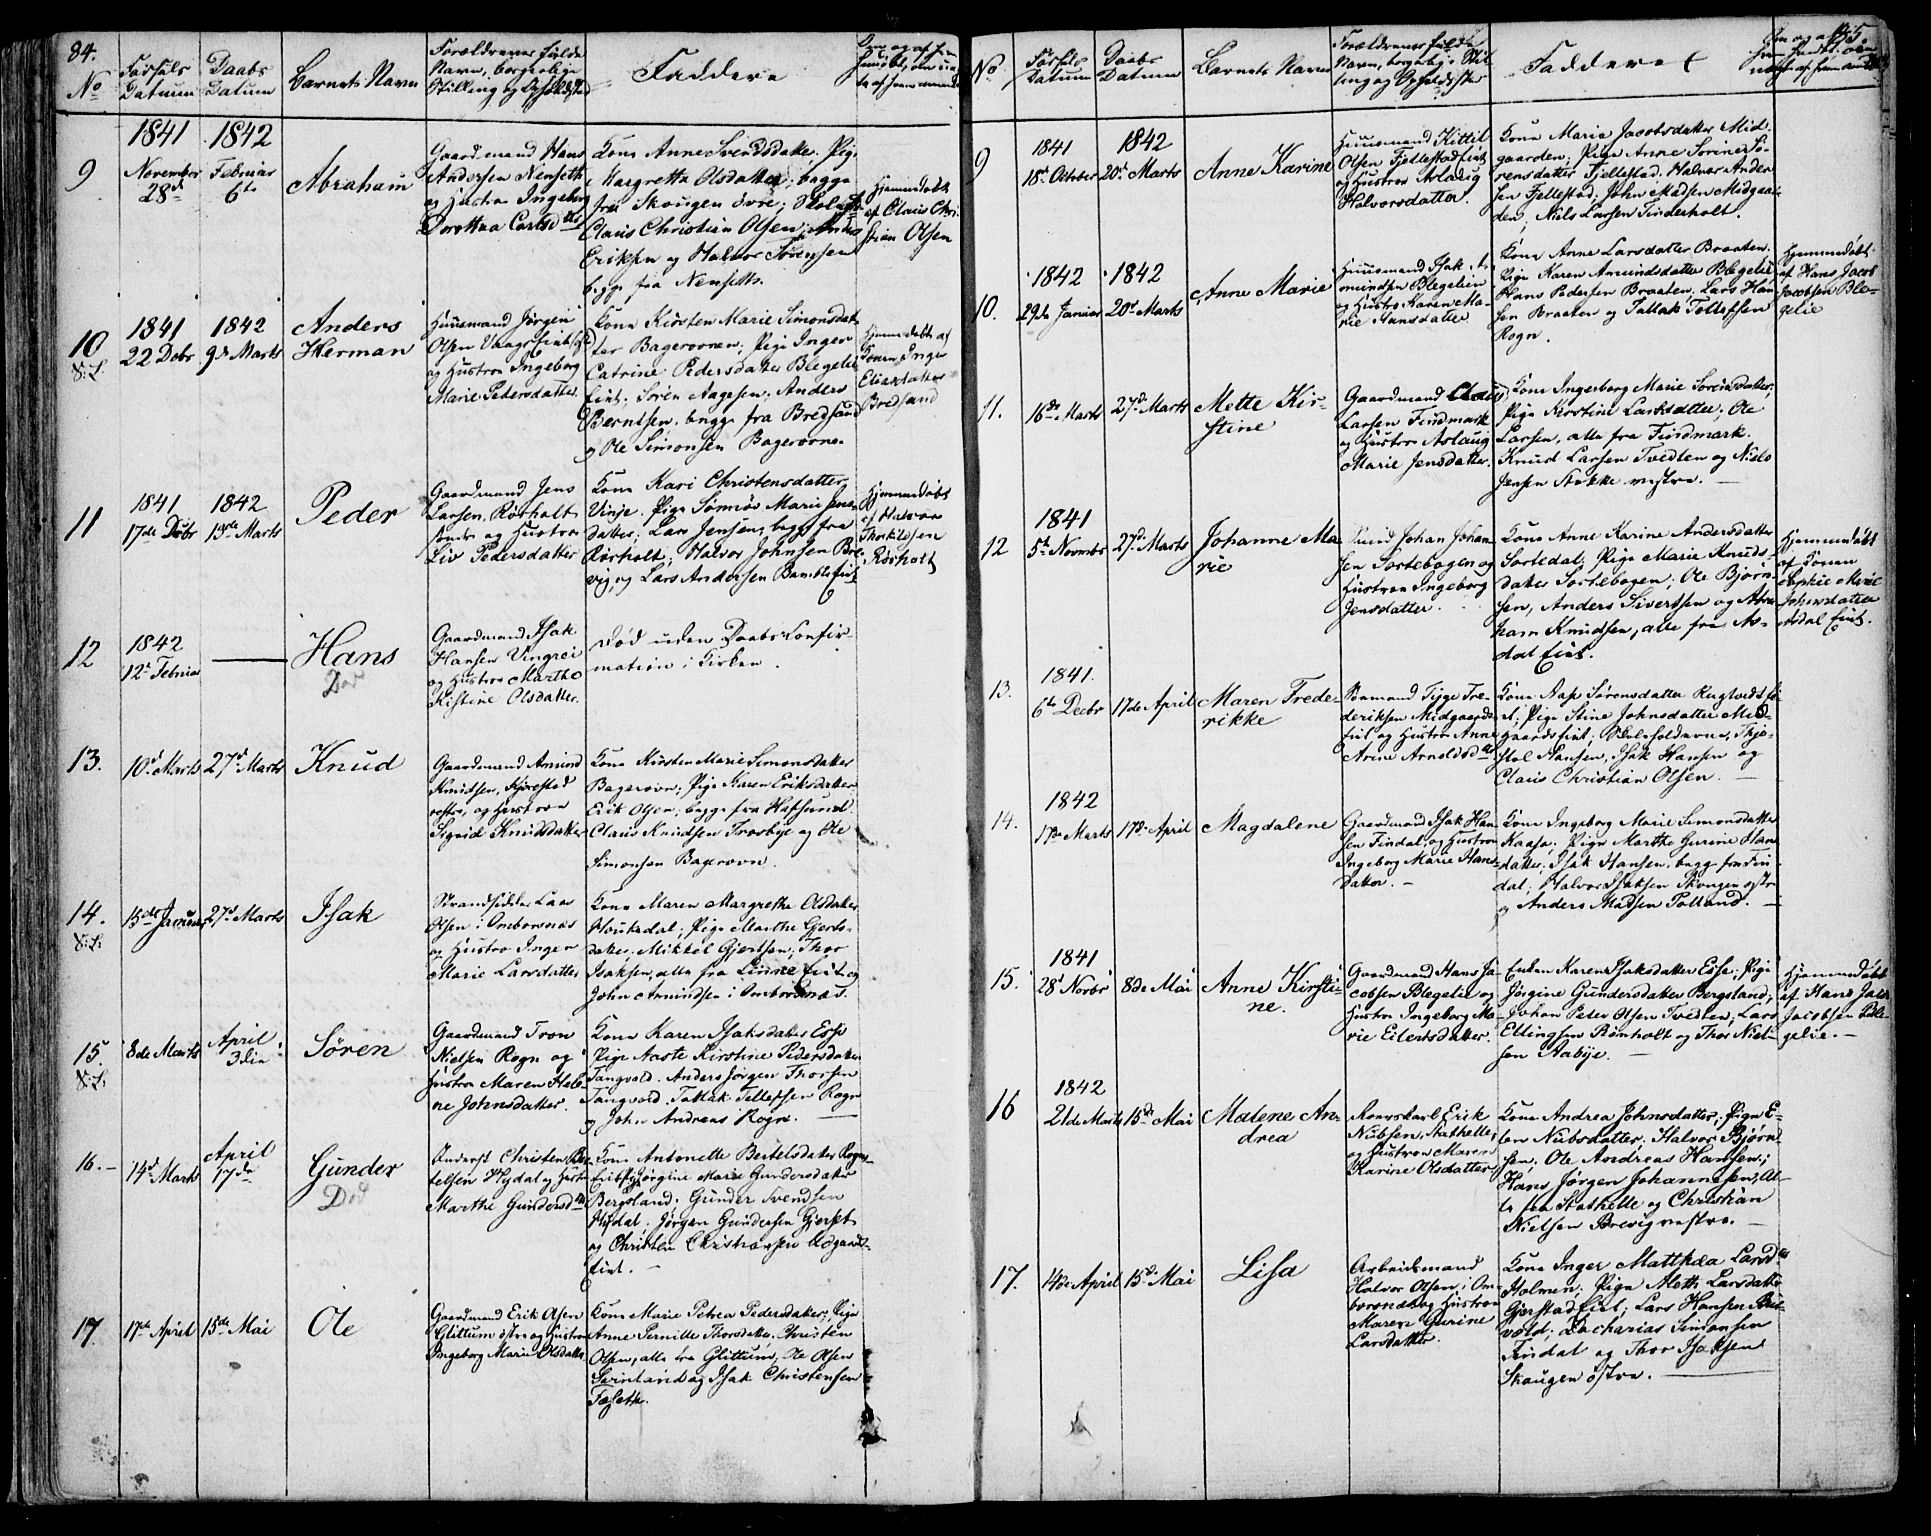 84.
No
Fødsels Datum
Daabs Datum
Barnets Navn
Forældrenes fulde
Navn, borgerlige
Stilling og Opholdsted
Faddere
9
1841
November
28d
1842
Februar
6te
Abraham
Gaardmand Hans
Andersen Nenseth
og Hustru Ingeborg
Dorothea Carlsdtr
Kone Anne Svendsdatter. Pige
Margrethe Olsdatter, begge
fra Skougen Øvre;
Claus Christian Olsen,
Eriksen og Halvor Sørensen
begge fra Nenseth.
Hjemmedøbt
af Claus Chri-
stian Olsen
10
S: L.
1841
22 Debr
1842
9de Marts
Anders
Herman
Huusmand Jørgen
Olsen
og Hustru Ingeborg
Marie Pedersdatter
Kone Kirsten Marie Simonsdat-
ter Bagerovnen; Pige Inger
Catrine Pedersdatter Blegelie
eint; Søren Aagesen; Anders
Berntsen, begge fra Bredsand
og Ole Simonsen Bagerovne.
Hjemmedøbt af
Konen Inger
Eliasdatter
Bredsand
11
1841
17de Debr
1842
13de Marts
Peder
Gaardmand Jens
Larsen, Rørholt
søndre og Hustru
Liv Pedersdatter
Kone Kari Christensdatter
Vinje. Pige Marie Jens-
datter; Lars Jensen, begge fra
Rørholt; Halvor Johnsen Bre-
vig, og Lars Andersen Bamble eint
Hjemmedøbt
af Halvor
Thorkildsen
Rørholt
12
1842
12te Februar
Hans
Død
Gaardmand Isak
Hansen Vingrei
og Hustru Marthe
Kistine Olsdatter.
Død uden Daabs Confir-
mation i Kirken.
13.
10d Marts
27d Marts
Knud
Gaardmand Amund
Knudsen, Kjørstad
vestre, og Hustruen
Sigrid Knudsdatter
Kone Kirsten Marie Simonsdatter
Bagerovn; Pige Karen Eriksdatter
Erik Olsen, begge fra Hafsund
Claus Knudsen Trosbye og Ole
Simonsen Bagerovn.
14.
S: L.
15de Januar
27d Marts
Isak
Strandsidder Lars
Olsen i Omborsnæs
og Hustru Inger
Marie Larsdatter
Kone Maren Margrethe Olsdatter
Houksdal; Pige Marthe Gjerts-
datter. Mikkel Gjertsen; Thor
Isaksen, alle fra Linne Eint og
John Amundsen i Omborsnæs.
15
S: L.
8de Marts
April
3die
Søren
Gaardmand Tron
Nielsen Rogn og
Hustru Maren Hele-
ne Johnsdatter.
Kone Karen Isaksdatter Esse
Pige Aaste Kirstine Pedersdatter
Tangvald. Anders Jørgen Thorsen
Tangvald. Tallak Tellefsen Rogn
og John Andreas Rogn.
16.
14d Marts
April
17de
Gunder
Død
Inderst Christen Ber-
telsen Hydal og Hustr
Marthe Gundersdtr
Kone Antonette Bertelsdatter Rogns
Eint; Pige Jørgine Marie Gundersdatter
Bergsland; Gunder Svendsen
Hydal; Jørgen Gundersen Gjerset
og Christen Christensen Aasgaards-
Eint.
17.
17de April
15de Mai
Ole
Gaardmand Erik Olsen
Glittum østre og Hustru
Ingeborg Marie Olsdatter
Kone Marie Petrea Pedersdatter; Pige
Anne Pernille Thorsdatter. Christen
Olsen, alle fra Glittum, Ole Olsen
Grinland og Isak Christensen
Faseth.
85.
No
Fødsels
Datum
Daabs
Datum
Barnets Navn
Forældrenes fulde
Navn, borgerlige Stil-
ling og Opholdsted
Faddere
9
1841
18d October
1842
20d Marts
Anne Karine
Huusmand Kittil
Olsen Fjellestad eint
og Hustru Aslaug
Halvorsdatter.
Kone Maria Jacobsdatter Mid-
gaarden; Pige Anne Sorine Sø-
rensdatter Fjellestad. Halvor Ander-
sen Fjellestad, John Madsen Midgaar-
den, Niels Larsen Tinderholt.
10.
1842
29de Januar
1842
20d Marts
Anne Marie
Huusmand Isak
mundsen Blegelien
og Hustru Karen Ma-
rie Hansdatter
Kone Anne Larsdatter Braaten.
Pige Karen Amundsdatter Blegelie
Hans Pedersen Braaten, Lars Han-
sen Braaten og Tallak Tellefsen
Rogn.
Hjemmedøbt
af Hans Jacob
Jacobsen Ble-
gelie
11.
16de Marts
27d Marts
Mette Kir-
stine
Gaardmand Claus
Larsen Findmark
og Hustru Aslaug
Marie Jensdatter.
Kone Ingeborg Marie Sørensdatter,
Pige Kirstine Larsdatter; Ole
Larsen, alle fra Findmark.
Knud Larsen Tvedten og Niels
Jensen Stokke vestre.
12
1841
5te Novembr
27d Marts
Johanne Ma-
rie
Johan Johan-
sen Sortebogen og
Hustruen Ingeborg
Jensdatter.
Kone Anne Karine Andersdatter
Sortedal; Pige Marie Knuds-
datter Sortebogen; Ole Bjørn-
sen, Anders Sivertsen og Abra-
ham Knudsen, alle fra As-
dal Eint.
Hjemmedøbt
af Konen
Sophie Marie
Johnsdatter
Asdal Eint.
13.
1841.
6te Decbr
17de April
Maren Frede-
rikke
Tyge Fre-
deriksen Midgaards-
eint og Hustru Anne
Arine Arnoldsdtr
Kone Aase Sørensdatter Rugtvedt Ei-
nt; Pige Stine Johnsdatter Mid-
gaards Eint; Thjo-
stol Hansen, Isak Hansen og
Claus Christian Olsen.
14.
1842
17de Marts
17de April
Magdalene
Gaardmand Isak Han-
sen Findal, og Hustru
Ingeborg Marie Hans-
datter.
Kone Ingeborg Marie Simonsdatter
Kaasa; Pige Marthe Gurine Hans-
datter. Isak Hansen, begge fra Fin-
dal; Halvor Isaksen Skougen østre
og Anders Madsen Tolland.
15.
1841
28d Novbr
8de Mai
Anne Kirsti-
ne.
Gaardmand Hans Ja-
cobsen Blegelie og
Hustru Ingeborg Ma-
rie Eilertsdatter.
Enken Karen Isaksdatter Esse; Pige
Jørgine Gundersdatter Bergsland;
Johan Peter Olsen Tvedten, Lars
Ellingsen Rømholt og Thor Niel-
sen Aabye.
Hjemmedøbt
af Hans Jacob
Jacobsen Ble-
gelie.
16
1842
21de Marts
15de Mai
Malene An-
drea
Erik
Nubsen, Stathelle;
og Hustruen Maren
Karine Olsdatter
Kone Andrea Johnsdatter; Pige E-
len Nubsdatter. Halvor Bjørn-
sen; Ole Andreas Hansen;
Hans Jørgen Johannesen, al-
le fra Stathelle og Christian
Nielsen Brevig vestre.
17.
14de April
15de Mai
Lisa
Arbeidsmand
Halvor Olsen, i Om-
borsnæs og Hustru
Maren Gurine
Larsdatter.
Kone Inger Matthea Larsdtr
Holmen; Pige Aleth Larsdatter
Gjerstad Eint; Lars Hansen
vold; Zacharias Simonsen
Findal og Thor Isaksen
Skaugen østre.